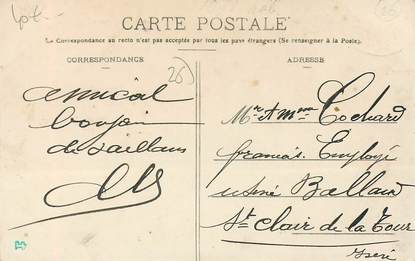 Lot.
26
CARTE POSTALE
La Correspondance au recto n'est pas acceptée par tous les pays étrangers (Se renseigner à la Poste).
CORRESPONDANCE
ADRESSE
amical
bonjour
de Saillans
Mr et Mme Cochard
francis. Employé
usine Balland
St Clair de la Tour
Isère